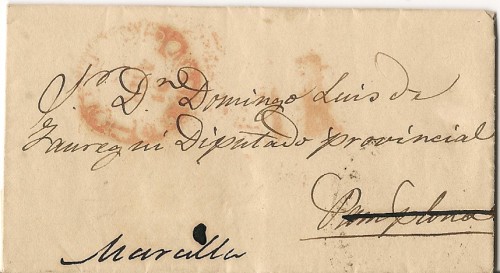 Sr. Dn. Domingo Luis de
Jauregui Diputado provincial
Pamplona
Marcilla